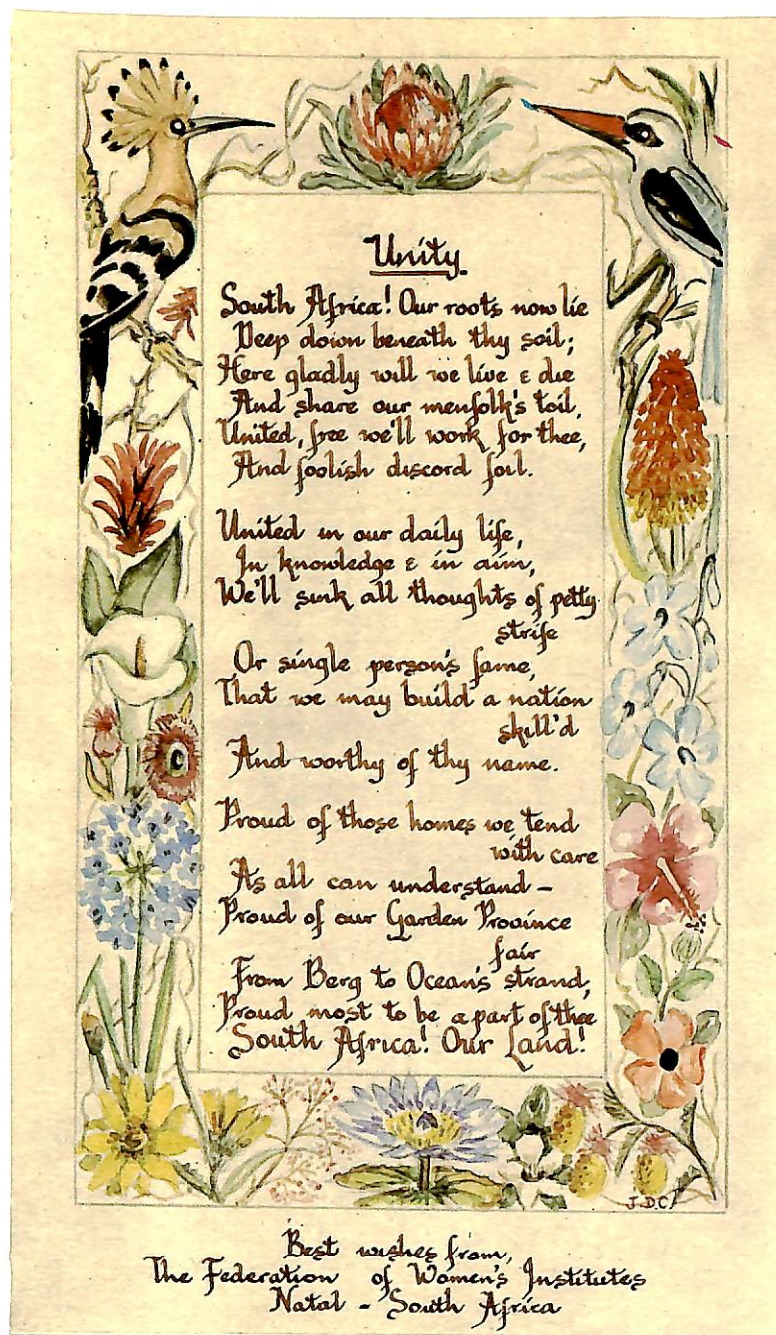 Unity
South Africa! Our roots now lie
Deep down beneath thy soil;
Here gladly will we live & die
And share our menfolk's toil,
United, free we'll work for thee,
And foolish discord foil.
United in our daily life,
In knowledge & in aim,
We'll sink all thoughts of petty
strife
Or single person's fame,
That we may build a nation
skill'd
And worthy of thy name.
Proud of those homes we tend
with care
As all can understand –
Proud of our Garden Province
fair
From Berg to Ocean's strand,
Proud most to be a part of thee
South Africa! Our Land!
J.D.C.
Best wishes from,
The Federation of Women's Institutes
Natal - South Africa